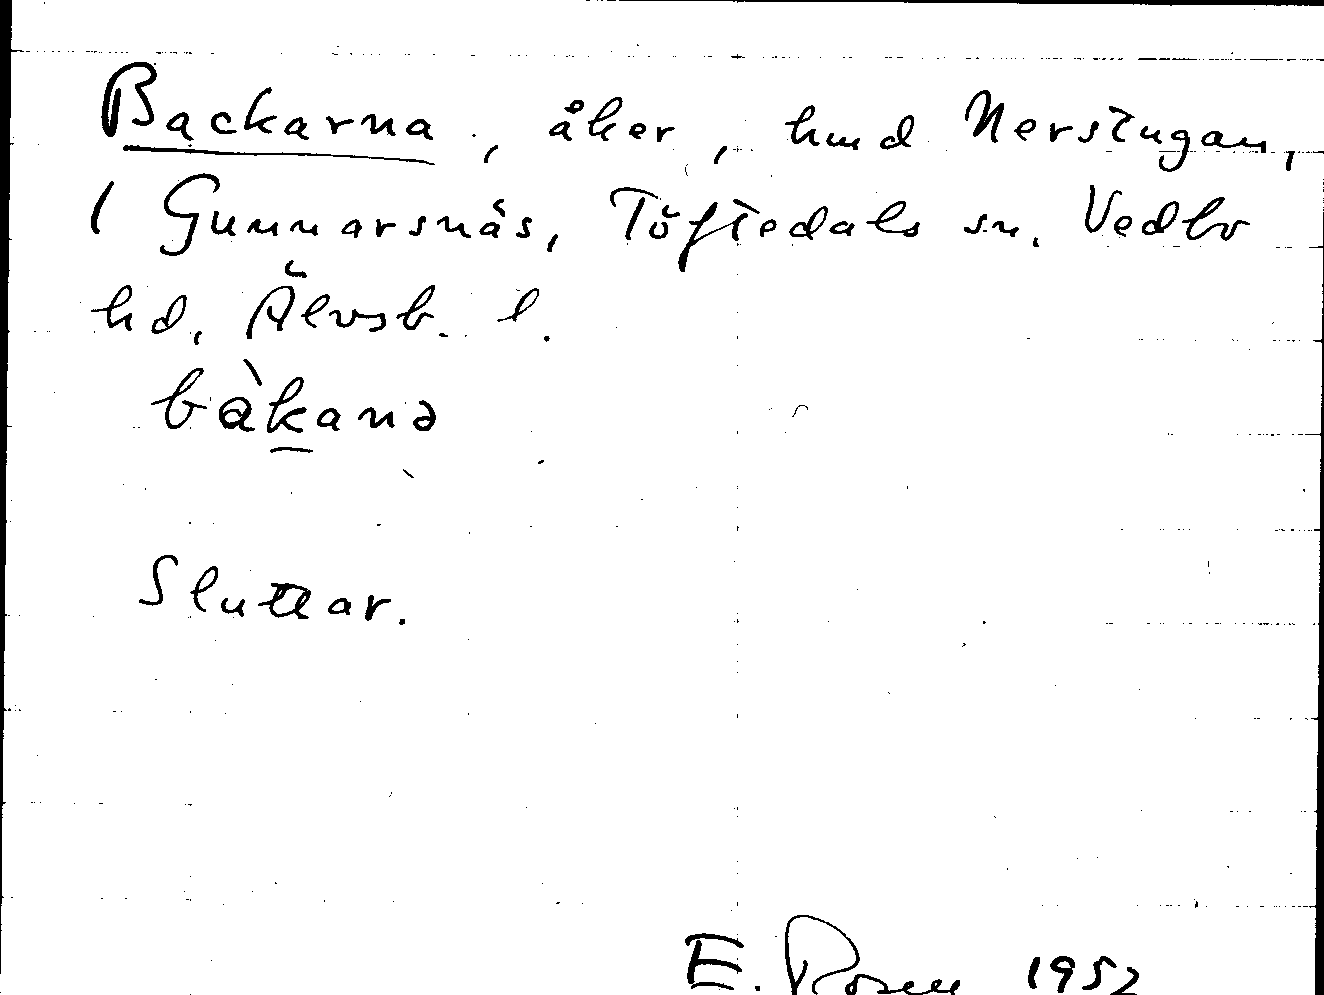 Backarna, åker, hmd Nerstugan,
1 Gunnarsnäs, Töftedals sn. Vedbo
hd, Älvsb. l.
bàk̲anə
Sluttar.
E. Rosen 1952